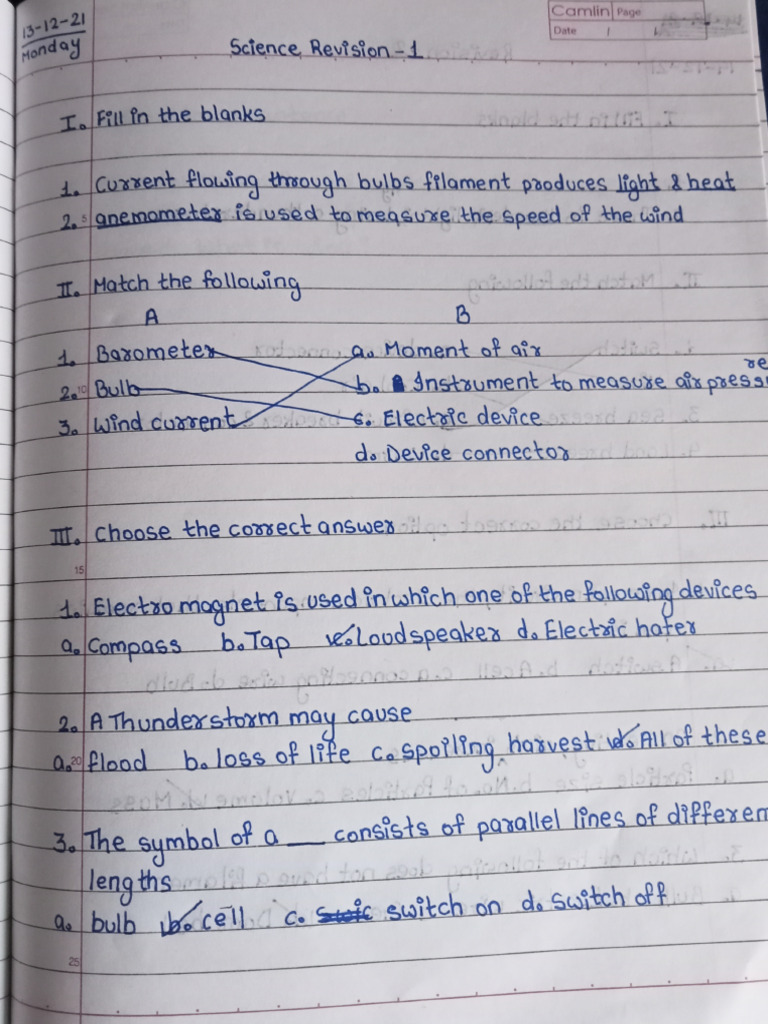 13-12-21
Monday
Camlin Page
Date / /
Science Revision - 1
I. Fill in the blanks
1. Current flowing through bulbs filament produces light & heat
2. anemometer is used to measure the speed of the wind
5
II. Match the following
A B
1. Barometer a. Moment of air
2. Bulb b. Instrument to measure air press re
10
3. Wind current c. Electric device
d. Device connector
III. Choose the correct answer
15
1. Electro magnet is used in which one of the following devices
a. Compass b. Tap c. Loudspeaker d. Electric hater
2. A Thunderstorm may cause
a. flood b. loss of life c. spoiling harvest d. All of these
20
3. The symbol of a __ consists of parallel lines of differen
lengths
a. bulb b. cell c. switch on d. switch off
25